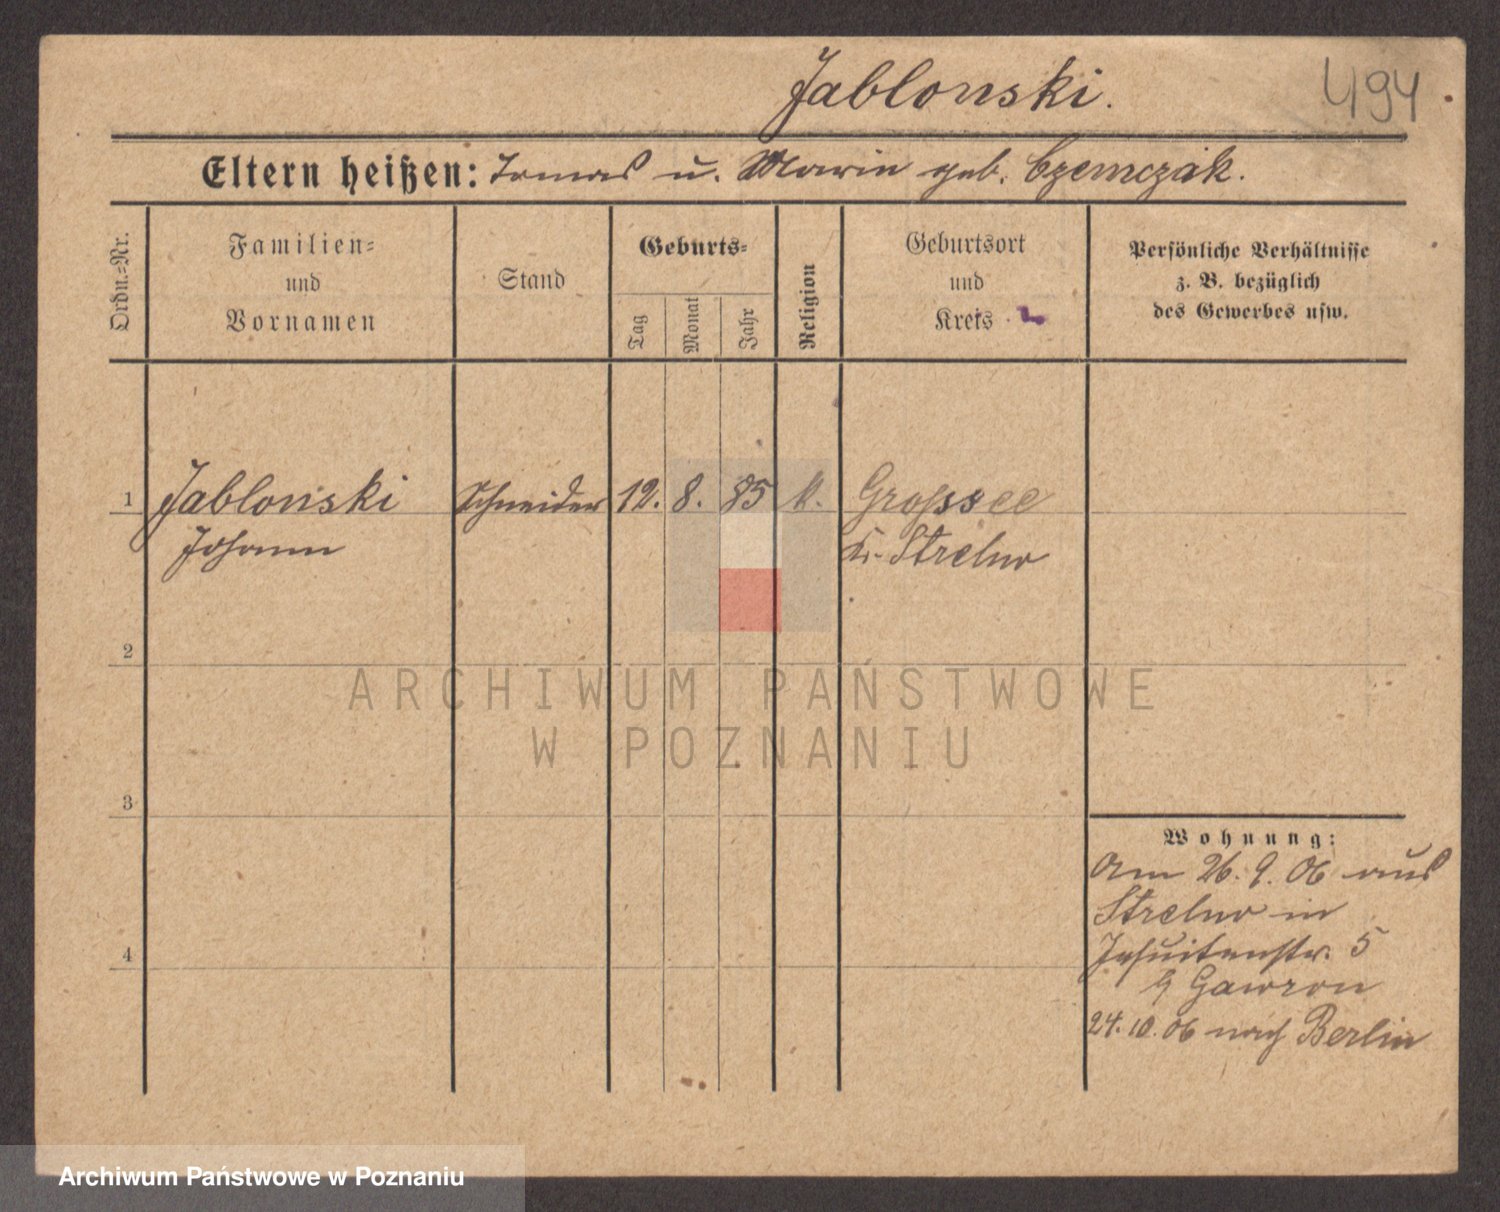 Jablonski.
494
Eltern heißen: Tomas u. Marie geb. Czemczak.
Ordn.-Nr.
Familien-
und
Vornamen
Stand
Geburts-
Tag
Monat
Jahr
Religion
Geburtsort
und
Kreis
Persönliche Verhältnisse
z. B. bezüglich
des Gewerbes usw.
1 Jablonski Schneider 12. 8. 85 k. Grossee
Johann Kr. Strelno
2
3
4
Wohnung:
Am 26. 9. 06 aus
Strelno in
Jesuitenstr. 5
b/ Gawron
24. 10. 06 nach Berlin
ARCHIWUM PAŃSTWOWE
W POZNANIU
Archiwum Państwowe w Poznaniu